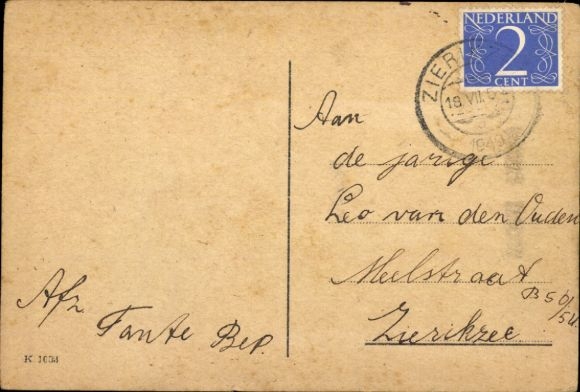 NEDERLAND
2
CENT
ZIERI
18 VII
194
Aan
de jarige
Leo van den Ouden
Meelstraat
B 50/
Zierikzee
Afz
Tante Bep.
K 1603